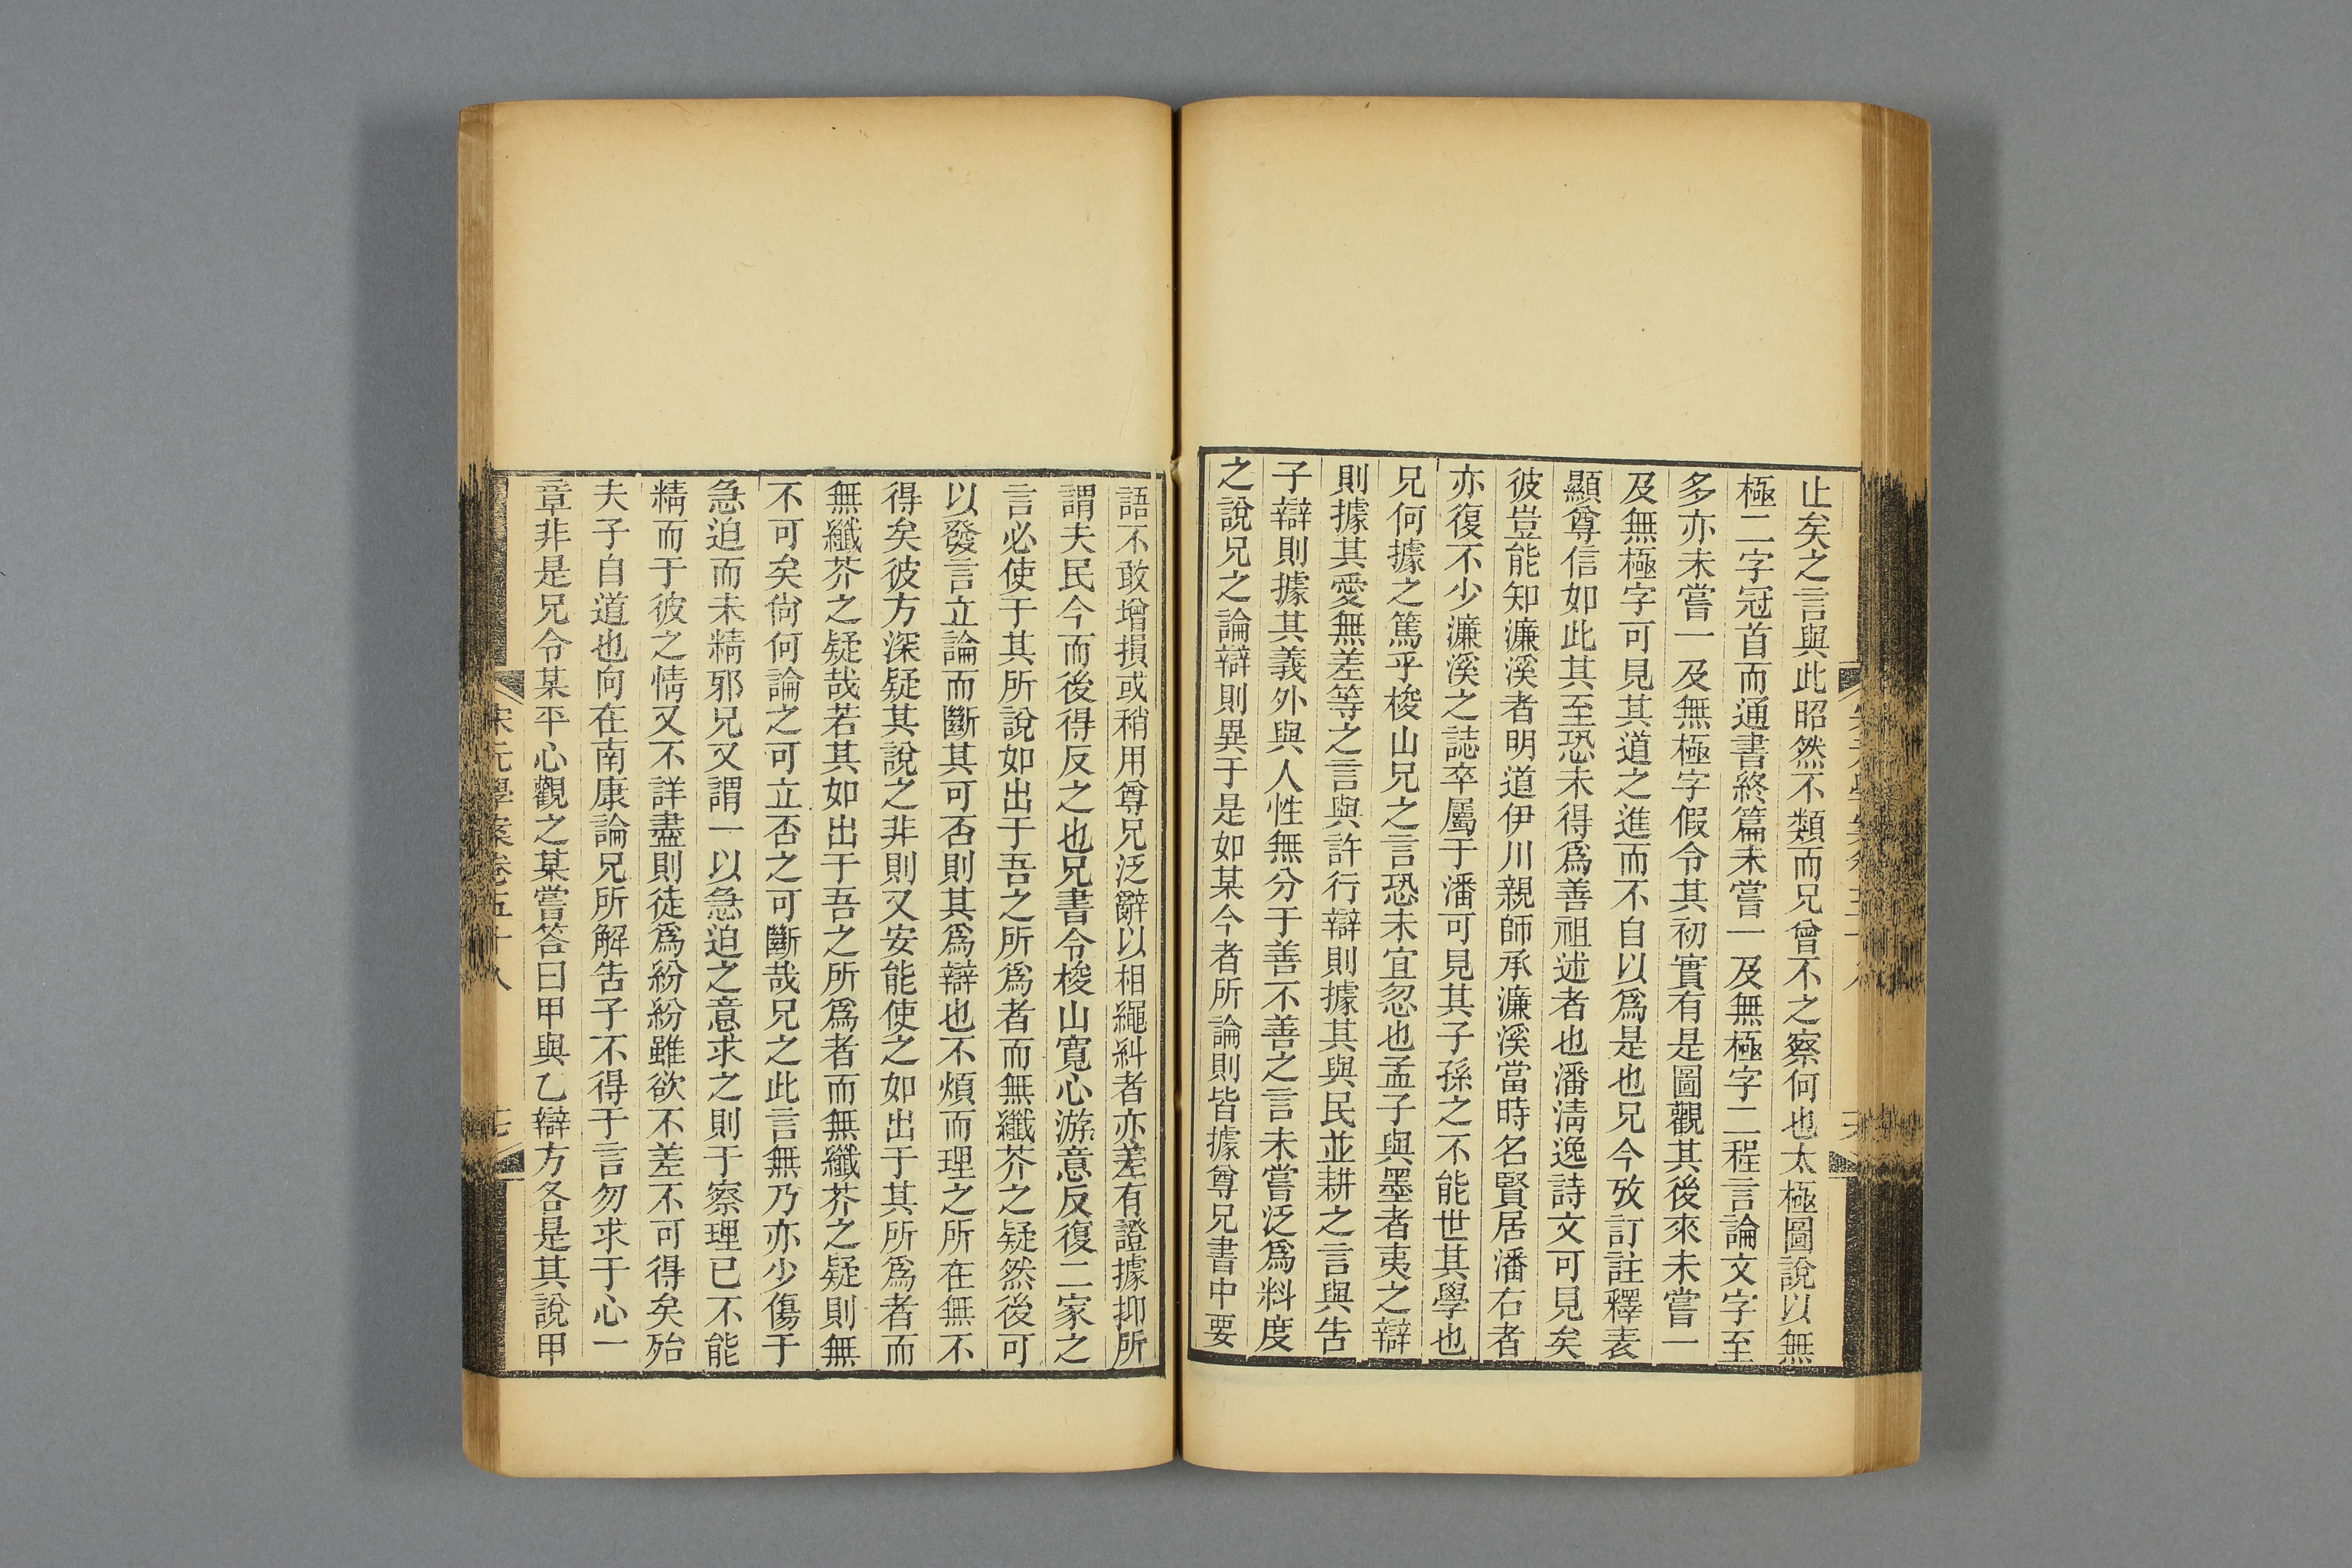 止矣之言與此昭然不類而兄曾不之察何也太極圖說以無
極二字冠首而通書終篇未嘗一及無極字二程言論文字至
多亦未嘗一及無極字假令其初實有是圖觀其後來未嘗一
及無極字可見其道之進而不自以爲是也兄今攷訂註釋表
顯尊信如此其至恐未得爲善祖述者也潘淸逸詩文可見矣
彼豈能知濂溪者明道伊川親師承濂溪當時名賢居潘右者
亦復不少濂溪之誌卒屬于潘可見其子孫之不能世其學也
兄何據之篤乎梭山兄之言恐未宜忽也孟子與墨者夷之辯
則據其愛無差等之言與許行辯則據其與民並耕之言與告
子辯則據其義外與人性無分于善不善之言未嘗泛爲料度
之說兄之論辯則異于是如某今者所論則皆據尊兄書中要
語不敢增損或稍用尊兄泛辭以相繩糾者亦差有證據抑所
謂夫民今而後得反之也兄書令梭山寬心游意反復二家之
言必使于其所說如出于吾之所爲者而無纖芥之疑然後可
以發言立論而斷其可否則其爲辯也不煩而理之所在無不
得矣彼方深疑其說之非則又安能使之如出于其所爲者而
無纖芥之疑哉若其如出于吾之所爲者而無纖芥之疑則無
不可矣尙何論之可立否之可斷哉兄之此言無乃亦少傷于
急迫而未精邪兄又謂一以急迫之意求之則于察理已不能
精而于彼之情又不詳盡則徒爲紛紛雖欲不差不可得矣殆
夫子自道也向在南康論兄所解告子不得于言勿求于心一
章非是兄令某平心觀之某嘗答曰甲與乙辯方各是其說甲
宋元學案卷五十八